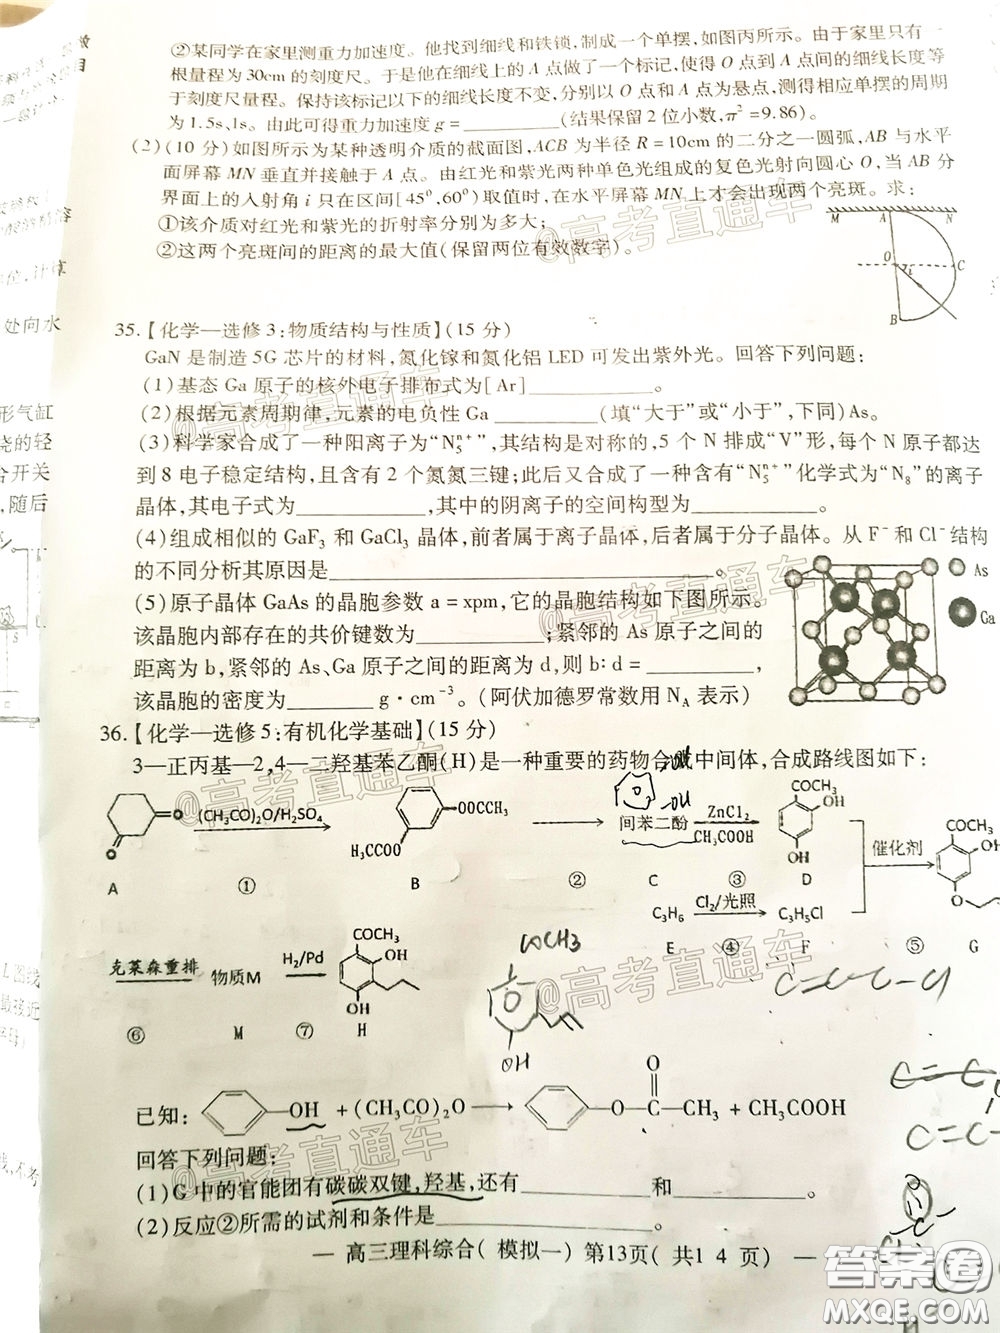 ②某同学在家里测重力加速度。他找到细线和铁锁,制成一个单摆,如图丙所示。由于家里只有一
根量程为30cm的刻度尺。于是他在细线上的A点做了一个标记,使得O点到A点间的细线长度等
于刻度尺量程。保持该标记以下的细线长度不变,分别以O点和A点为悬点,测得相应单摆的周期
为1.5s,1s。由此可得重力加速度g=________(结果保留2位小数,π²=9.86)。
(2)(10分)如图所示为某种透明介质的截面图,ACB为半径R=10cm的二分之一圆弧,AB与水平
面屏幕MN垂直并接触于A点。由红光和紫光两种单色光组成的复色光射向圆心O,当AB分
界面上的入射角i只在区间[45⁰,60⁰)取值时,在水平屏幕MN上才会出现两个亮斑。求:
①该介质对红光和紫光的折射率分别为多大;
②这两个亮斑间的距离的最大值(保留两位有效数字)。
M A N
O i C
B
35.【化学—选修3:物质结构与性质】(15分)
GaN是制造5G芯片的材料,氮化镓和氮化铝LED可发出紫外光。回答下列问题:
(1)基态Ga原子的核外电子排布式为[Ar]________
(2)根据元素周期律,元素的电负性Ga________(填“大于”或“小于”,下同)As。
(3)科学家合成了一种阳离子为“N₅ⁿ⁺”,其结构是对称的,5个N排成“V”形,每个N原子都达
到8电子稳定结构,且含有2个氮氮三键;此后又合成了一种含有“N₅ⁿ⁺”化学式为“N₈”的离子
晶体,其电子式为________,其中的阴离子的空间构型为________。
(4)组成相似的GaF₃和GaCl₃晶体,前者属于离子晶体,后者属于分子晶体。从F⁻和Cl⁻结构
的不同分析其原因是________。
(5)原子晶体GaAs的晶胞参数a=xpm,它的晶胞结构如下图所示。
该晶胞内部存在的共价键数为________;紧邻的As原子之间的
距离为b,紧邻的As、Ga原子之间的距离为d,则b:d=________,
该晶胞的密度为________g·cm⁻³。(阿伏加德罗常数用N_A表示)
As
Ga
36.【化学—选修5:有机化学基础】(15分)
3—正丙基—2,4—二羟基苯乙酮(H)是一种重要的药物合成中间体,合成路线图如下:
O O (CH₃CO)₂O/H₂SO₄ OCCH₃ H₃CCOO 间苯二酚 ZnCl₂ CH₃COOH COCH₃ OH OH 催化剂 COCH₃ OH O
A ① B ② C ③ D
C₃H₆ Cl₂/光照 C₃H₅Cl
E ④ F ⑤ G
克莱森重排 物质M H₂/Pd COCH₃ OH OH
⑥ M ⑦ H
COCH3
OH
已知: OH +(CH₃CO)₂O → O—C—CH₃ + CH₃COOH
O
回答下列问题:
(1)G中的官能团有碳碳双键,羟基,还有________和________。
(2)反应②所需的试剂和条件是________。
— 高三理科综合( 模拟一) 第13页( 共1 4 页) —
@高考直通车
答案圈
MXQE.COM